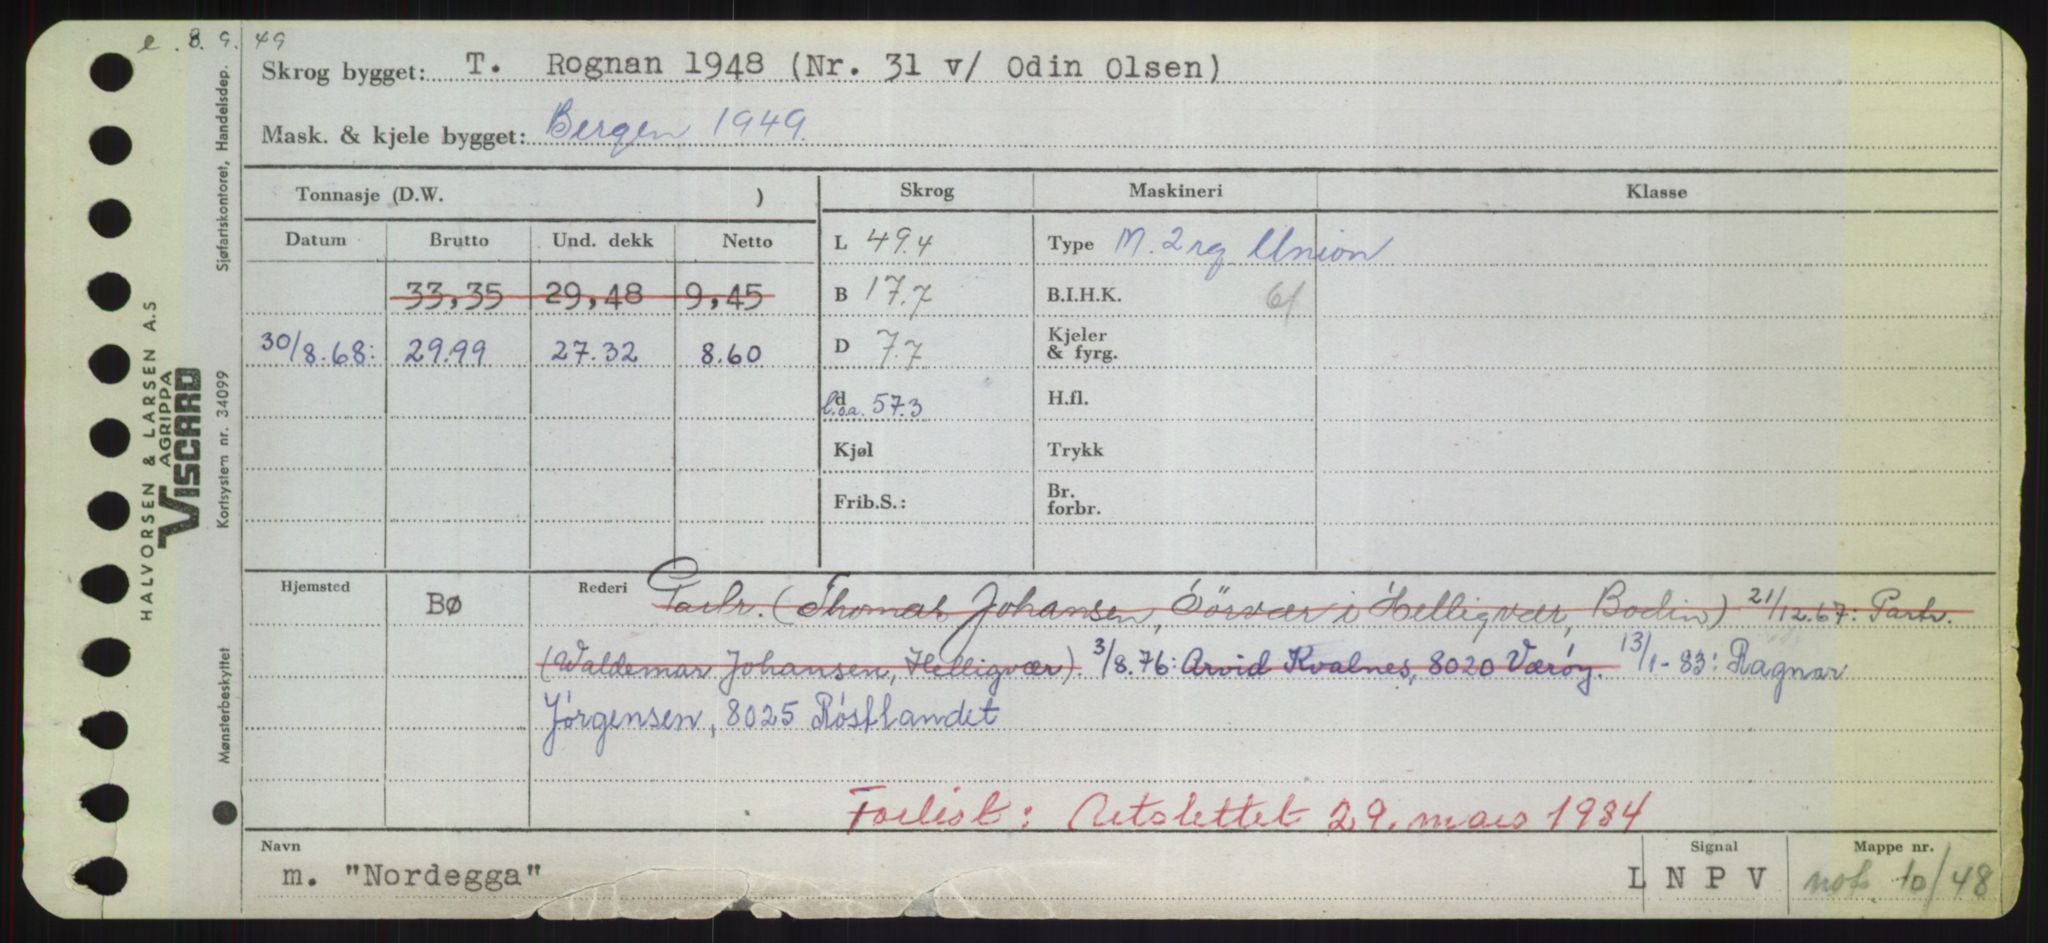 e. 8. 9. 49
Skrog bygget: T. Rognan 1948 (Nr. 31 v/ Odin Olsen)
Mask. & kjele bygget: Bergen 1949.
Tonnasje (D.W. )
Skrog Maskineri Klasse
Datum Brutto Und. dekk Netto
L 49.4 Type M. 2 Union
33,35 29,48 9,45
B 17.7 B.I.H.K.
30/8.68: 29.99 27.32 8.60
D 7.7 Kjeler & fyrg.
d l.o.a. 57.3 H.fl.
Kjøl Trykk
Frib.S.: Br. forbr.
Hjemsted Bø Rederi Partr. (Thomas Johansen, Sörvær i Helligvær, Bodin) 21/12.67: Partr.
(Waldemar Johansen, Helligvær). 3/8.76: Arvid Kvalnes, 8020 Værøy. 13/1-83: Ragnar
Jørgensen, 8025 Røstlandet
Forlist: Utslettet 29. mars 1984
Navn Signal Mappe nr.
m. "Nordegga" L N P V 10/48
Sjøfartskontoret, Handelsdep.
Kortsystem nr. 34099
Mønsterbeskyttet
HALVORSEN & LARSEN A.S
AGRIPPA
VISCARD